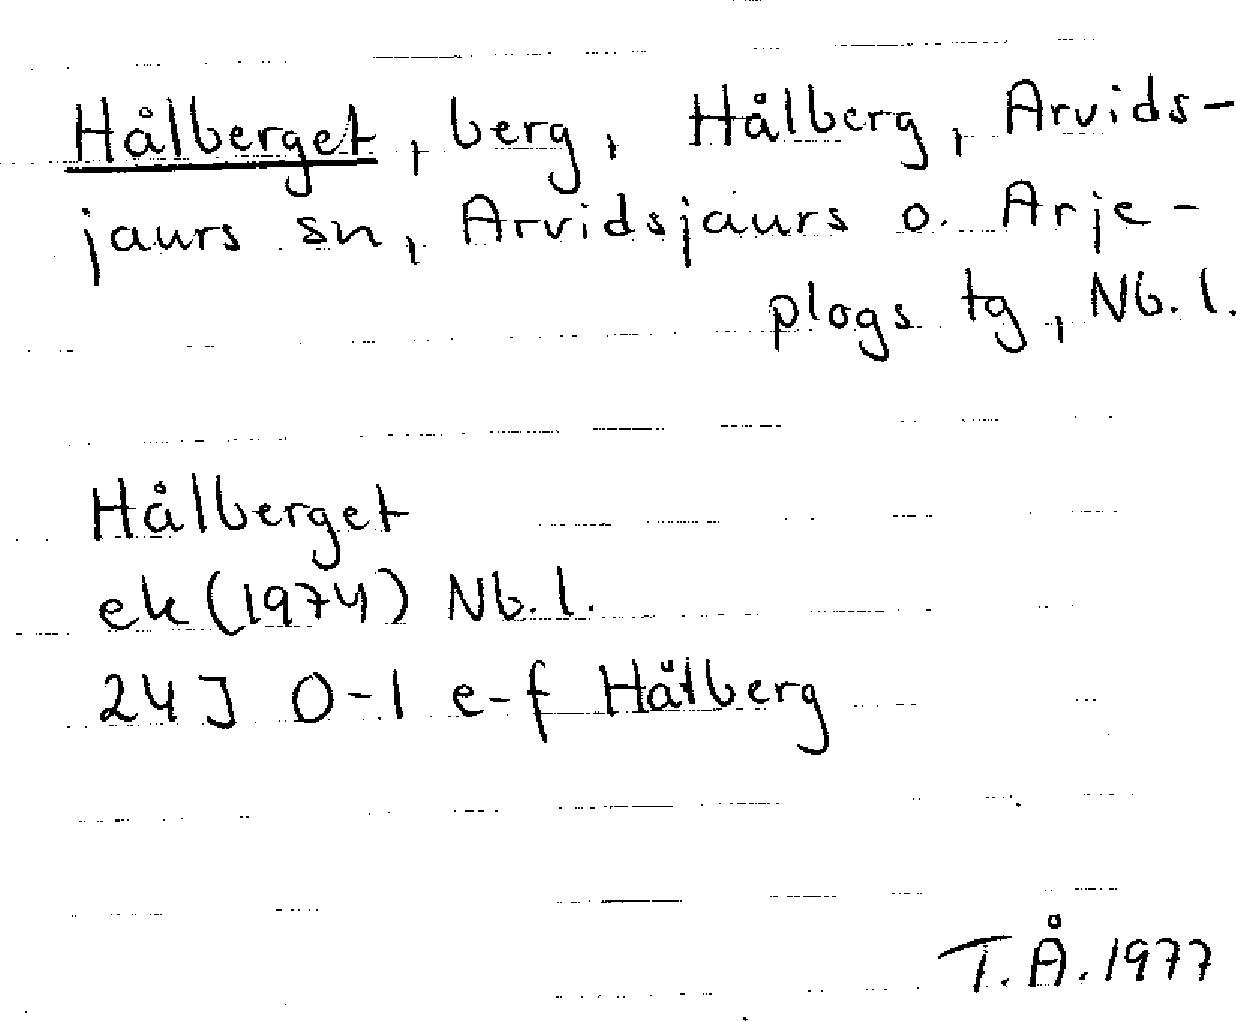 Hålberget, berg, Hålberg, Arvids-
jaurs sn, Arvidsjaurs o. Arje-
plogs tg, Nb. l.
Hålberget
ek (1974) Nb. l.
24J 0-1 e-f Hålberg
T.Å. 1977